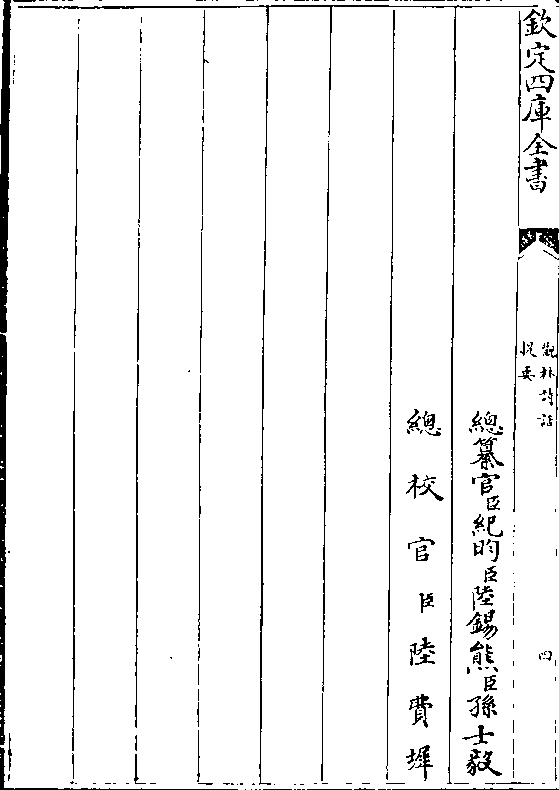 欽定四庫全書
觀林詩話
提要
四
總纂官臣紀昀臣陸錫熊臣孫士毅
總校官臣陸費墀